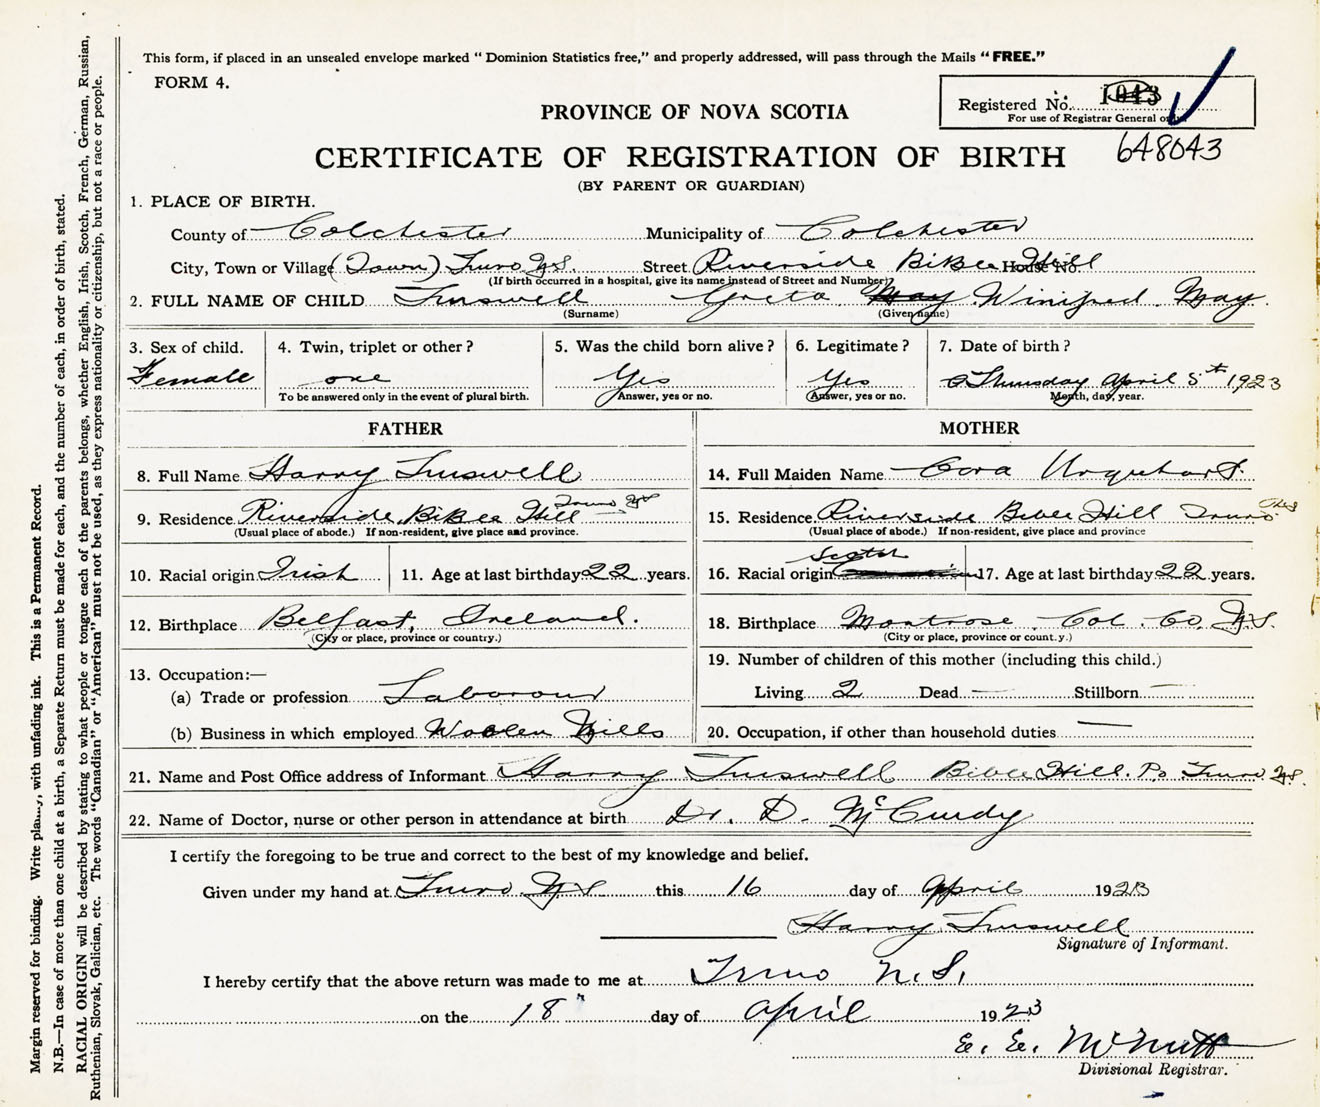 This form, if placed in an unsealed envelope marked “ Dominion Statistics free,” and properly addressed, will pass through the Mails “ FREE.”
FORM 4.
Registered No. 1043
For use of Registrar General only
PROVINCE OF NOVA SCOTIA
648043
CERTIFICATE OF REGISTRATION OF BIRTH
(BY PARENT OR GUARDIAN)
1. PLACE OF BIRTH.
County of Colchester Municipality of Colchester
City, Town or Village (Town) Truro N.S. Street Riverside BiBee Hill House No.
(If birth occurred in a hospital, give its name instead of Street and Number)
2. FULL NAME OF CHILD Truswell Greta May Winifred May
(Surname) (Given name)
3. Sex of child. 4. Twin, triplet or other ? 5. Was the child born alive ? 6. Legitimate ? 7. Date of birth ?
Female one Yes Yes Thursday April 5th 1923
To be answered only in the event of plural birth. Answer, yes or no. Answer, yes or no. Month, day, year.
FATHER
8. Full Name Harry Truswell
9. Residence Riverside BiBee Hill Truro NS
(Usual place of abode.) If non-resident, give place and province.
10. Racial origin Irish 11. Age at last birthday 22 years.
12. Birthplace Belfast, Ireland.
(City or place, province or country.)
13. Occupation:—
(a) Trade or profession Laborour
(b) Business in which employed Woolen Mills
MOTHER
14. Full Maiden Name Cora Urquhart
15. Residence Riverside Bible Hill Truro
(Usual place of abode.) If non-resident, give place and province
16. Racial origin Scotch 17. Age at last birthday 22 years.
18. Birthplace Montrose Col. Co. N.S.
(City or place, province or count.y.)
19. Number of children of this mother (including this child.)
Living 2 Dead — Stillborn —
20. Occupation, if other than household duties —
21. Name and Post Office address of Informant Harry Truswell Bible Hill. Po. Truro N.S.
22. Name of Doctor, nurse or other person in attendance at birth Dr. D. McCurdy
I certify the foregoing to be true and correct to the best of my knowledge and belief.
Given under my hand at Truro N.S this 16 day of April 1923
Harry Truswell
Signature of Informant.
I hereby certify that the above return was made to me at Truro N.S.
on the 18" day of April 1923
E. E. McNutt
Divisional Registrar.
Margin reserved for binding. Write plainly, with unfading ink. This is a Permanent Record.
N.B.—In case of more than one child at a birth, a Separate Return must be made for each, and the number of each, in order of birth, stated.
RACIAL ORIGIN will be described by stating to what people or tongue each of the parents belongs, whether English, Irish, Scotch, French, German, Russian,
Ruthenian, Slovak, Galician, etc. The words “Canadian” or “American” must not be used, as they express nationality or citizenship, but not a race or people.